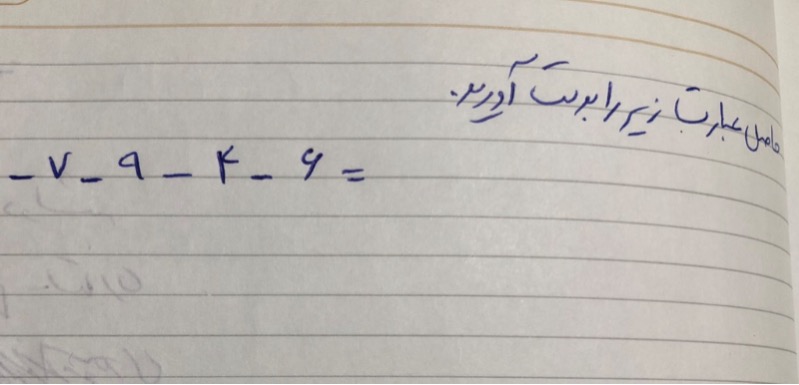 حاصل عبارت زیر را بدست آورید.
- ۷ - ۹ - ۴ - ۶ =